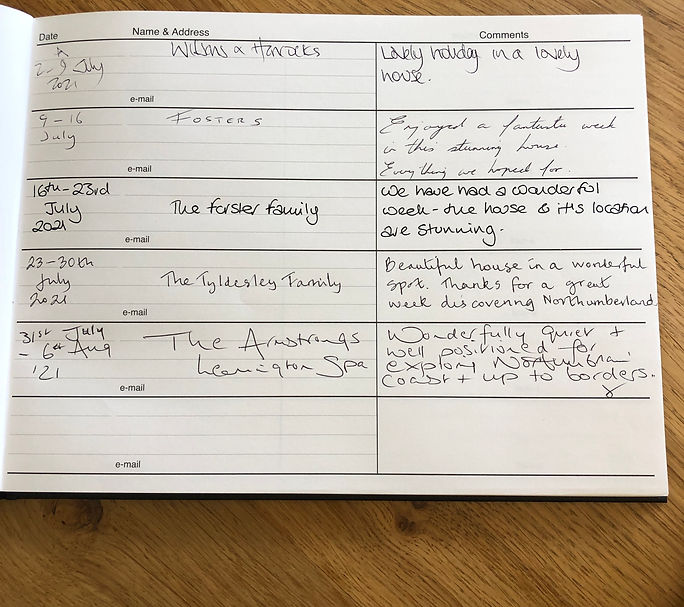 Date
Name & Address
Comments
2-9 July
2021
& Horrocks
e-mail
Lovely holiday in a lovely
house.
9-16
July
FOSTERS
e-mail
Enjoyed a fantastic week
in this stunning house.
Everything we hoped for.
16th-23rd
July
2021
The Forster Family
e-mail
We have had a wonderful
week - the house & it's location
are stunning.
23-30th
July
2021
The Tyldesley Family
e-mail
Beautiful house in a wonderful
spot. Thanks for a great
week discovering Northumberland.
31st July
- 6th Aug
'21
The Armstrongs
Leamington Spa
e-mail
Wonderfully quiet +
well positioned for
coast + up to borders.
e-mail